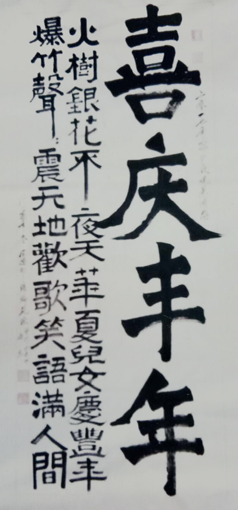 喜庆丰年
火樹銀花不夜天華夏兒女慶豐年
爆竹聲聲震天地歡歌笑語滿人間